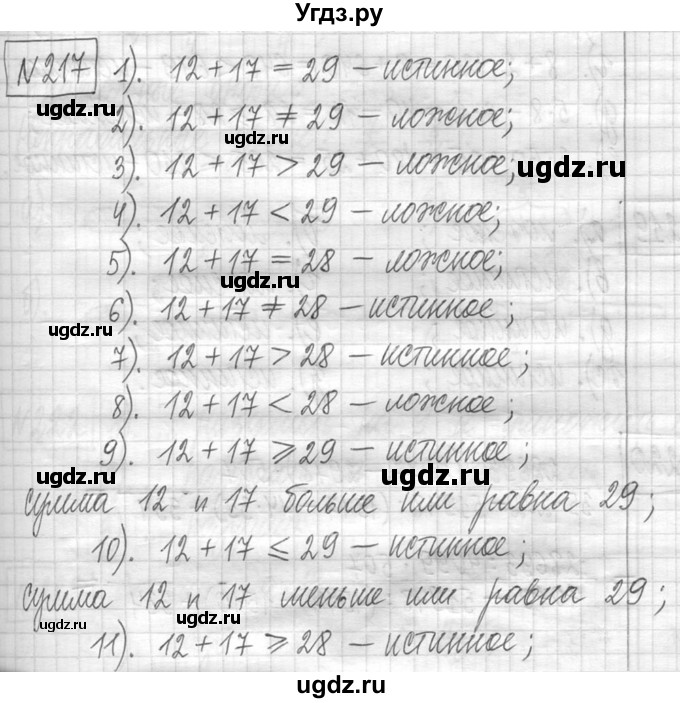 Угдз.ру
№217 1). 12 + 17 = 29 – истинное;
ugdz.ru
2). 12 + 17 ≠ 29 – ложное;
ugdz.ru
3). 12 + 17 > 29 – ложное;
ugdz.ru
4). 12 + 17 < 29 – ложное;
5). 12 + 17 = 28 – ложное;
ugdz.ru
6). 12 + 17 ≠ 28 – истинное;
ugdz.ru
7). 12 + 17 > 28 – истинное;
8). 12 + 17 < 28 – ложное;
9). 12 + 17 ⩾ 29 – истинное;
ugdz.ru
ugdz.ru
сумма 12 и 17 больше или равна 29;
10). 12 + 17 ⩽ 29 – истинное;
сумма 12 и 17 меньше или равна 29;
ugdz.ru
ugdz.ru
11). 12 + 17 ⩾ 28 – истинное;
ugdz.ru